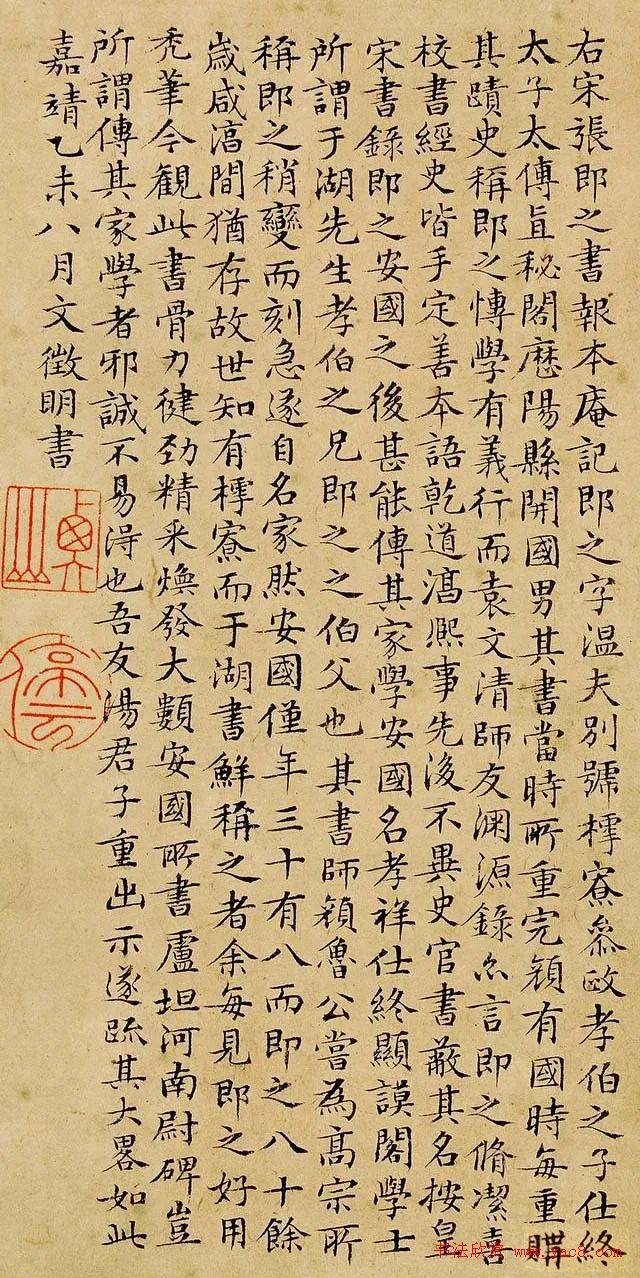 右宋張即之書報本庵記即之字溫夫別號樗寮叅政孝伯之子仕終
太子太傅直秘閣歷陽縣開國男其書當時所重完顏有國時每重購
其蹟史稱即之慱學有義行而袁文清師友渊源錄亦言即之脩潔喜
校書經史皆手定善本語乾道淳熙事先後不異史官書蔽其名按皇
宋書錄即之安國之後甚能傳其家學安國名孝祥仕終顯謨閣學士
所謂于湖先生孝伯之兄即之之伯父也其書師顏魯公嘗為高宗所
稱即之稍變而刻急遂自名家然安國僅年三十有八而即之八十餘
歲咸淳間猶存故世知有樗寮而于湖書鮮稱之者余每見即之好用
禿筆今觀此書骨力健勁精采煥發大類安國所書盧坦河南尉碑豈
所謂傳其家學者邪誠不易得也吾友湯君子重出示遂疏其大畧如此
嘉靖乙未八月文徵明書
書法欣赏 www.yac8.com